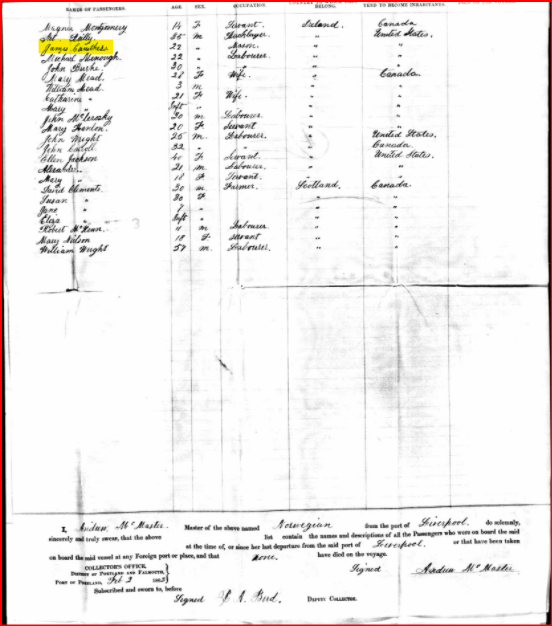 NAMES OF PASSENGERS. AGE SEX. OCCUPATION. BELONG. TEND TO BECOME INHABITANTS.
Magnie Montgomery 14 F Servant Ireland. Canada
35 M United States.
James 22 " Mason. " "
Michael 22 " Labourer. " "
John Burke. 30 " " " "
Mary Mead. 28 F Wife. " Canada.
William Mead. 3 m " "
Catharine " 21 F Wife. " "
Mary " Inft " " "
John McLerosky 30 m Labourer " "
Mary Hanlon. 20 F Servant " "
John Wright 25 m Labourer. " United States.
John 32 " " Canada.
Ellen Jackson 40 F Servant. " United States.
Alexander " 21 m Labourer. " "
Mary " 18 F Servant. " "
David Clements. 30 m Farmer. Scotland. Canada.
Susan " 30 F " "
Jane " 7 " " "
Eliza " Inft " " "
Robert 11 m Labourer " "
Mary Nelson 18 F Servant " "
William Wright 57 m Labourer. " "
I, Andrew McMaster. Master of the above named Norwegian from the port of Liverpool. do solemnly,
sincerely and truly swear, that the above list contain the names and descriptions of all the Passengers who were on board the said
at the time of, or since her last departure from the said port of Liverpool. or that have been taken
on board the said vessel at any Foreign port or place, and that none. have died on the voyage.
COLLECTOR'S OFFICE, Signed Andrew McMaster.
DISTRICT OF PORTLAND AND FALMOUTH,
PORT OF PORTLAND, Feb 2 1863
Subscribed and sworn to, before
Signed DEPUTY COLLECTOR.